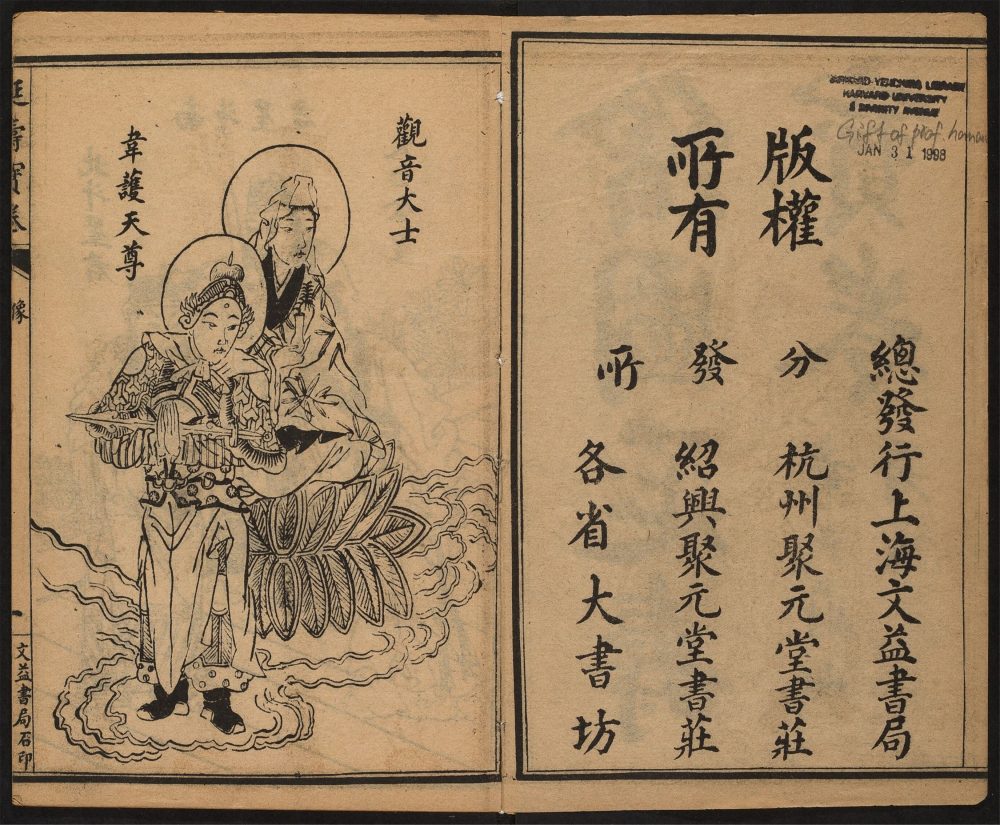 HARVARD-YENCHING LIBRARY
HARVARD UNIVERSITY
2 DIVINITY AVENUE
Gift of prof. hanan
JAN 31 1998
版權
所有
總發行上海文益書局
分 杭州聚元堂書莊
發 紹興聚元堂書莊
所 各省大書坊
觀音大士
韋護天尊
延壽寶卷
像
一
文益書局石印